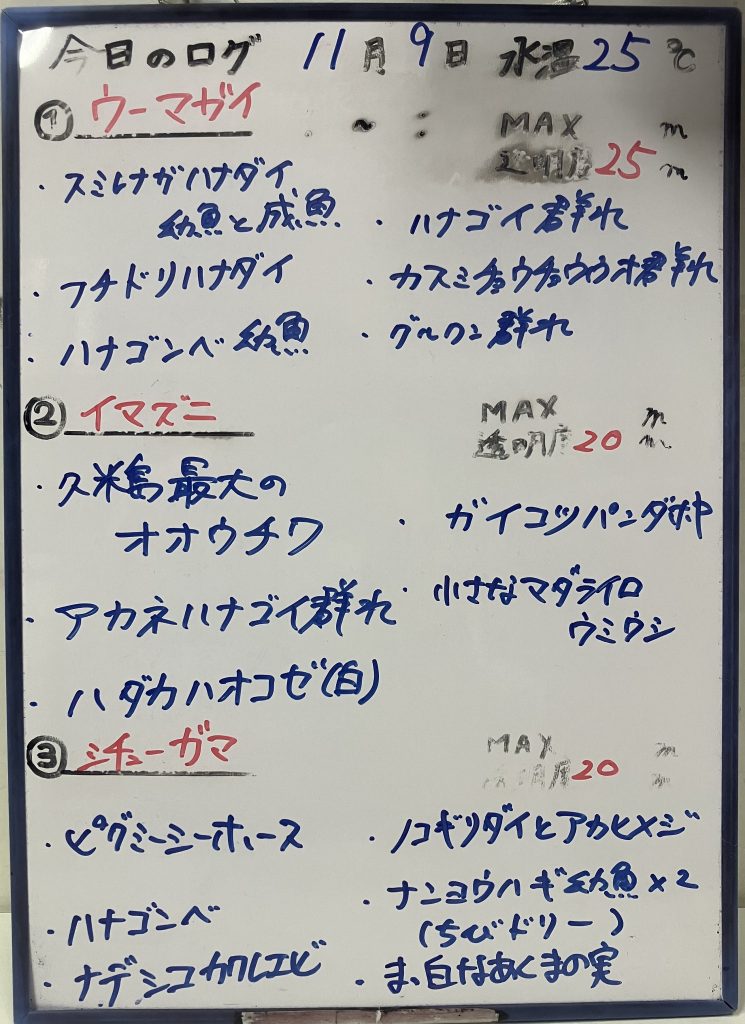 今日のログ 11月9日 水温25℃
① ウーマガイ
・ ~ : MAX m
透明度25m
・スミレナガハナダイ
幼魚と成魚
・フチドリハナダイ
・ハナゴンベ 幼魚
・ハナゴイ群れ
・カスミチョウチョウウオ群れ
・グルクン群れ
② イマズニ
MAX m
透明度20m
・久米島最大の
オオウチワ
・アカネハナゴイ群れ
・ハダカハオコゼ(白)
・ガイコツパンダホヤ
・小さなマダライロ
ウミウシ
③ シチューガマ
MAX m
透明度20m
・ピグミーシーホース
・ハナゴンベ
・ナデシコカクレエビ
・ノコギリダイとアカヒメジ
・ナンヨウハギ幼魚×2
(ちびドリー)
・まっ白なあくまの実